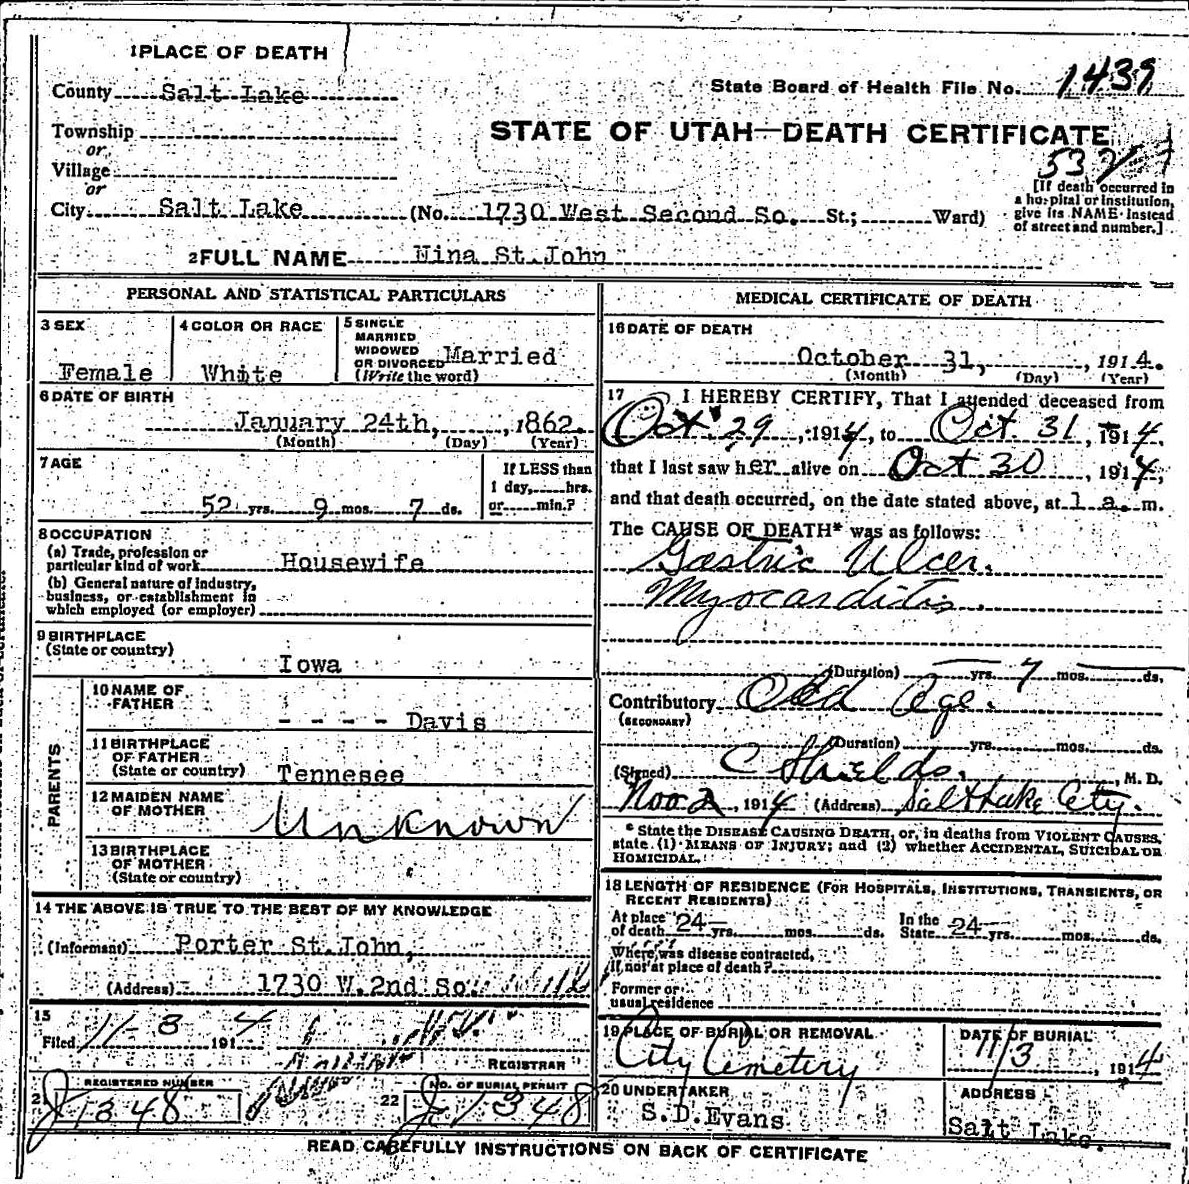 1 PLACE OF DEATH
County Salt Lake
State Board of Health File No. 1439
Township
or
STATE OF UTAH—DEATH CERTIFICATE
532
Village
or
City Salt Lake (No. 1730 West Second So. St.; Ward)
[If death occurred in a hospital or institution, give its NAME instead of street and number.]
2 FULL NAME Nina St.John
PERSONAL AND STATISTICAL PARTICULARS
3 SEX
Female
4 COLOR OR RACE
White
5 SINGLE
MARRIED
WIDOWED
OR DIVORCED Married
(Write the word)
6 DATE OF BIRTH
January 24th, , 1862.
(Month) (Day) (Year)
7 AGE
52 yrs. 9 mos. 7 ds.
If LESS than
1 day, hrs.
or min.?
8 OCCUPATION
(a) Trade, profession or
particular kind of work Housewife
(b) General nature of industry,
business, or establishment in
which employed (or employer)
9 BIRTHPLACE
(State or country)
Iowa
PARENTS
10 NAME OF
FATHER
- - - - Davis
11 BIRTHPLACE
OF FATHER
(State or country) Tennesee
12 MAIDEN NAME
OF MOTHER
Unknown
13 BIRTHPLACE
OF MOTHER
(State or country)
14 THE ABOVE IS TRUE TO THE BEST OF MY KNOWLEDGE
(Informant) Porter St.John,
(Address) 1730 W.2nd So.
15
Filed 11-3 1914
REGISTRAR
21 REGISTERED NUMBER
J1348
22 NO. OF BURIAL PERMIT
J1348
MEDICAL CERTIFICATE OF DEATH
16 DATE OF DEATH
October 31, , 1914.
(Month) (Day) (Year)
17 I HEREBY CERTIFY, That I attended deceased from
Oct. 29, 1914, to Oct. 31, 1914,
that I last saw her alive on Oct 30, 1914,
and that death occurred, on the date stated above, at 1 a. m.
The CAUSE OF DEATH* was as follows:
Gastric Ulcer.
Myocarditis.
(Duration) yrs. 7 mos. ds.
Contributory Old Age.
(SECONDARY)
(Duration) yrs. mos. ds.
(Signed) C Shields, M. D.
Nov 2, 1914 (Address) Salt Lake City.
* State the DISEASE CAUSING DEATH, or, in deaths from VIOLENT CAUSES,
state (1) MEANS OF INJURY; and (2) whether ACCIDENTAL, SUICIDAL OR
HOMICIDAL.
18 LENGTH OF RESIDENCE (FOR HOSPITALS, INSTITUTIONS, TRANSIENTS, OR
RECENT RESIDENTS)
At place
of death 24 yrs. mos. ds.
In the
State 24 yrs. mos. ds.
Where was disease contracted,
If not at place of death?
Former or
usual residence
19 PLACE OF BURIAL OR REMOVAL
City Cemetery
DATE OF BURIAL
11/3, 1914
20 UNDERTAKER
S.D.Evans
ADDRESS
Salt Lake.
READ CAREFULLY INSTRUCTIONS ON BACK OF CERTIFICATE